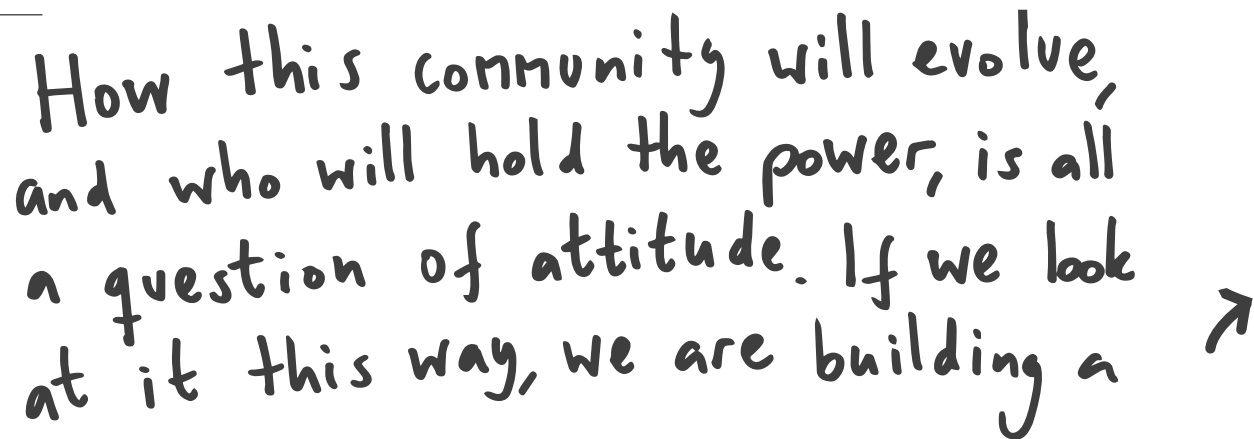 How this community will evolve,
and who will hold the power, is all
a question of attitude. If we look
at it this way, we are building a